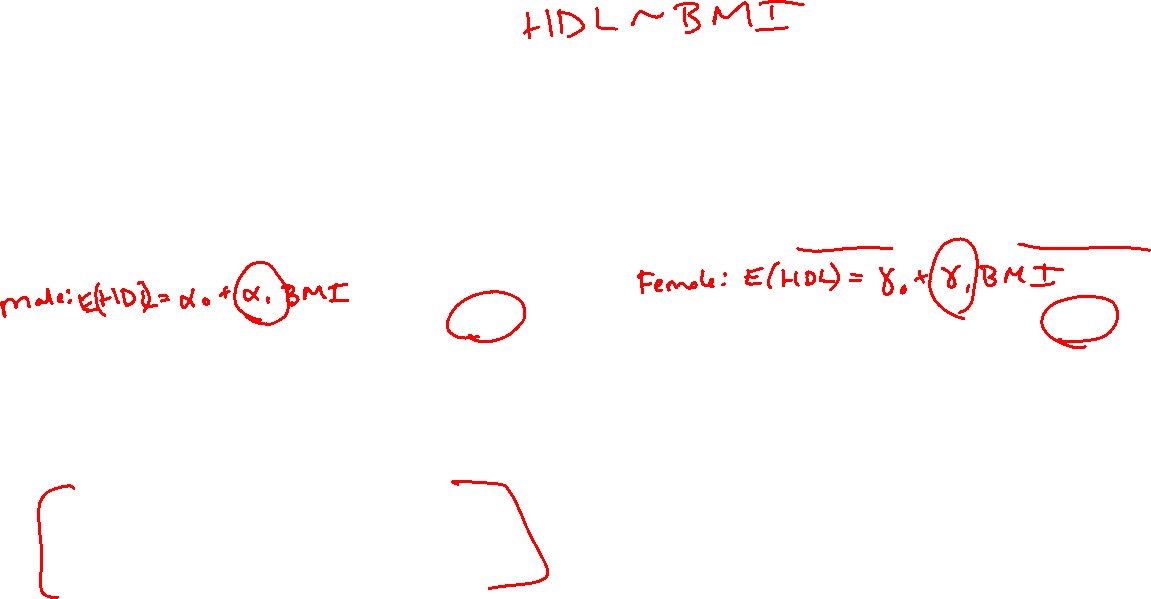 HDL ~ BMI
Male: E(HDL) = α₀ + α₁ BMI
Female: E(HDL) = γ₀ + γ₁ BMI